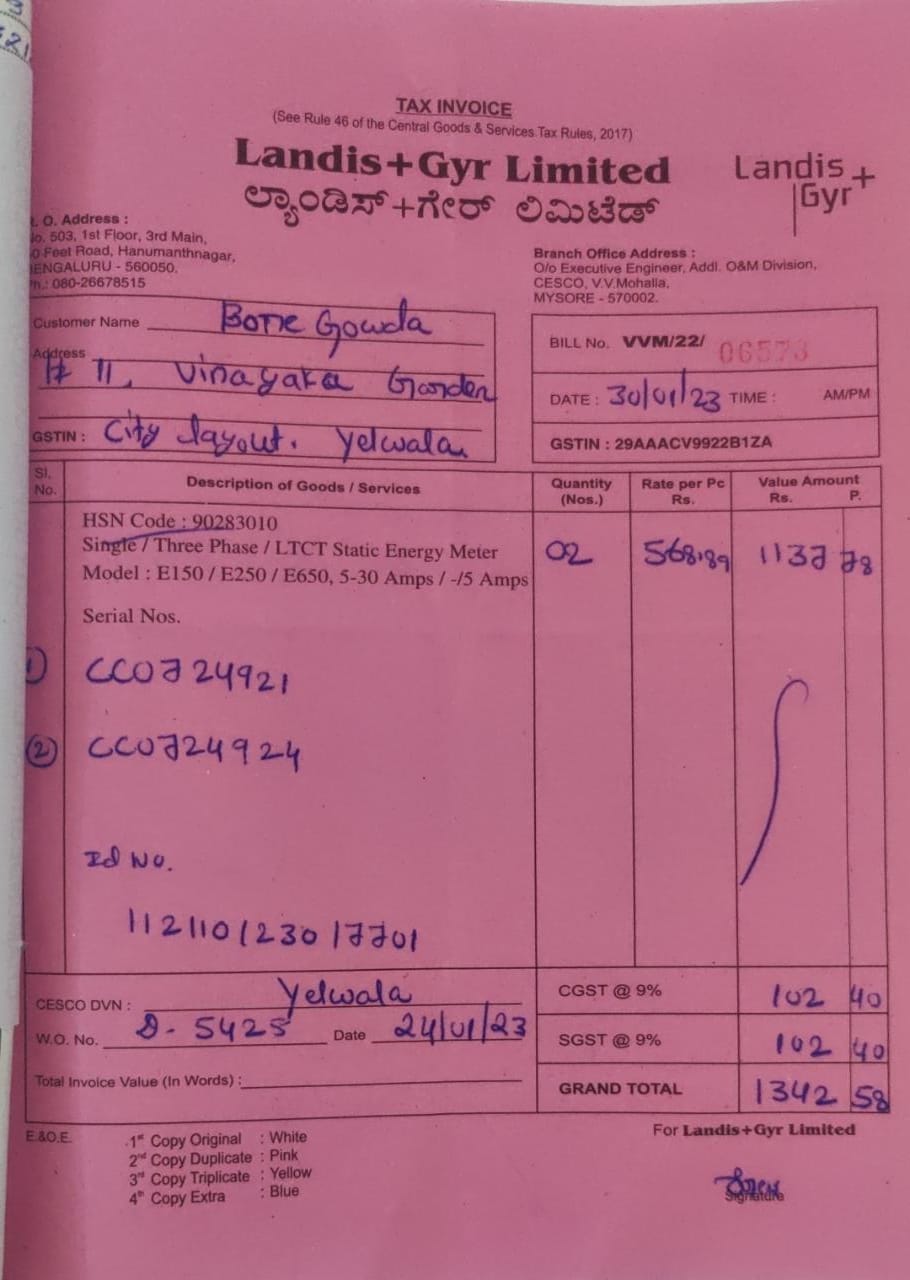 TAX INVOICE
(See Rule 46 of the Central Goods & Services Tax Rules, 2017)
Landis+Gyr Limited
ಲ್ಯಾಂಡಿಸ್+ಗೇರ್ ಲಿಮಿಟೆಡ್
Landis+
Gyr
. O. Address :
No. 503, 1st Floor, 3rd Main,
0 Feet Road, Hanumanthnagar,
BENGALURU - 560050.
Ph.: 080-26678515
Branch Office Address :
O/o Executive Engineer, Addl. O&M Division,
CESCO, V.V.Mohalla,
MYSORE - 570002.
Customer Name Borre Gowda
Address # 11, Vinayaka Gorden
GSTIN : City layout. Yelwala
BILL No. VVM/22/ 06573
DATE : 30/01/23 TIME : AM/PM
GSTIN : 29AAACV9922B1ZA
Sl. No. Description of Goods / Services Quantity (Nos.) Rate per Pc Rs. Value Amount Rs. P.
HSN Code : 90283010
Single / Three Phase / LTCT Static Energy Meter 02 568.89 1137 78
Model : E150 / E250 / E650, 5-30 Amps / -/5 Amps
Serial Nos.
1) CC0724921
2) CC0724924
Id No.
112110123017701
CESCO DVN : Yelwala
W.O. No. D- 5425 Date 24/01/23
Total Invoice Value (In Words) :
CGST @ 9% 102 40
SGST @ 9% 102 40
GRAND TOTAL 1342 58
E.&O.E.
1st Copy Original : White
2nd Copy Duplicate : Pink
3rd Copy Triplicate : Yellow
4th Copy Extra : Blue
For Landis+Gyr Limited
Signature